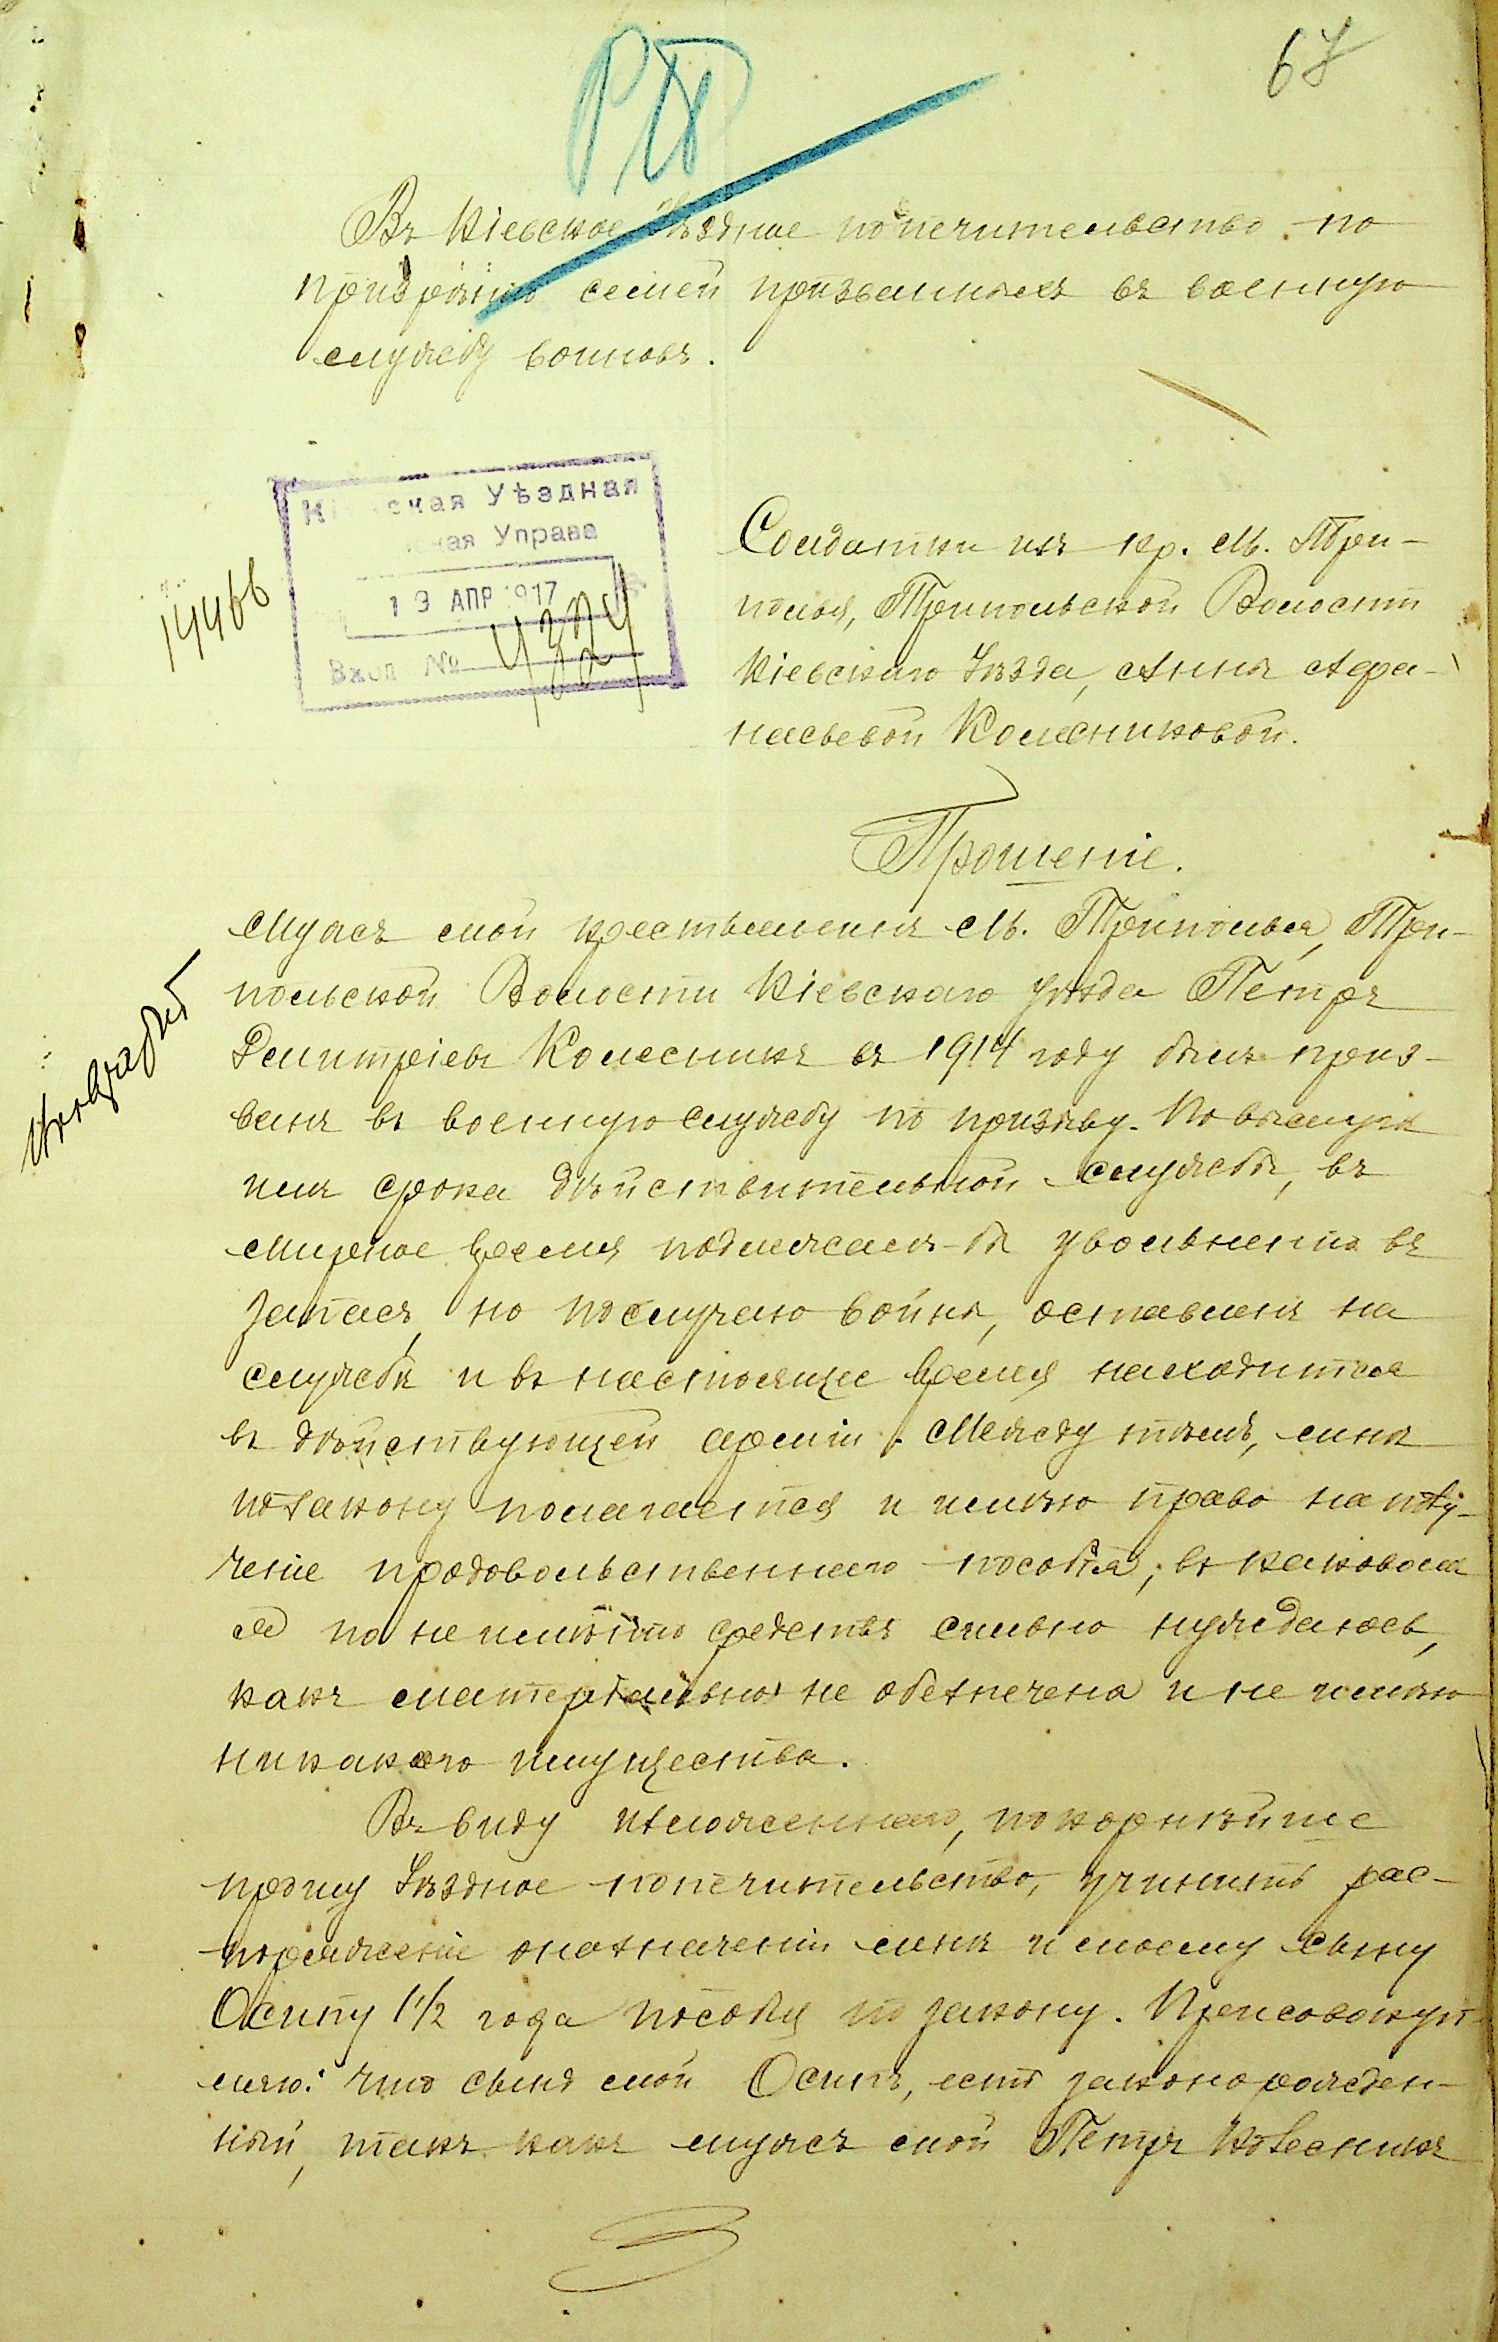 67
Въ Кіевское Уѣздное попечительство по
призрѣнію семей призванныхъ въ военную
службу воиновъ.
Кіевская Уѣздная
ная Управа
19 АПР 1917
Вход №
4324
14466
Солдатки изъ кр. М. Три-
полья, Трипольской Волости
Кіевскаго Уѣзда, Анны Афа-
насьевой Колесниковой.
Прошеніе.
Мужъ мой крестьянинъ М. Триполья, Три-
польской Волости Кіевскаго уѣзда Петръ
Дмитріевъ Колесникъ въ 1914 году былъ приз-
ванъ въ военную службу по призыву. По выслугѣ
имъ срока дѣйствительной службы, въ
мирное время подлежалъ-бы увольненію въ
запасъ, но по случаю войны, оставленъ на
службѣ и въ настоящее время находится
въ дѣйствующей арміи. Между тѣмъ, мнѣ
по закону полагается и имѣю право на полу-
ченіе продовольственнаго пособія, въ каковомъ
я по неимѣнію средствъ сильно нуждаюсь,
какъ матеріально не обезпечена и не имѣю
никакого имущества.
Въ виду изложеннаго, покорнѣйше
прошу Уѣздное попечительство, учинить рас-
поряженіе о назначеніи мнѣ и моему сыну
Осипу 1½ года пособія по закону. Присовокуп-
ляю: что сынъ мой Осипъ, есть законорожден-
ный, такъ какъ мужъ мой Петръ Колесникъ